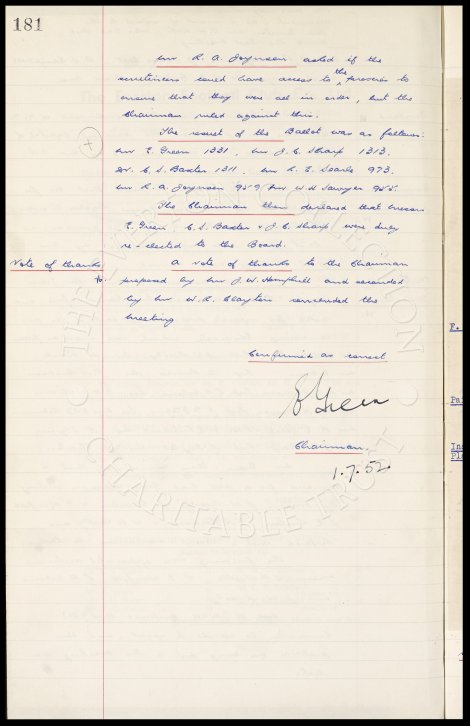 181
Mr R. A. Joynson asked if the
scrutineers could have access to the proxies to
ensure that they were all in order, but the
Chairman ruled against this.
The result of the Ballot was as follows:
Mr E. Green 1331, Mr J. C. Sharp 1313.
Mr. C. S. Baxter 1311. Mr R. E. Searle 973.
Mr R. A. Joynson 959, Mr W. H. Sawyer 955.
The Chairman then declared that Messrs
E. Green C. S. Baxter & J. C. Sharp were duly
re-elected to the Board.
Vote of thanks
A vote of thanks to the Chairman
proposed by Mr J. W. Hemphill and seconded
by Mr W. R. Clayton concluded the
meeting
Confirmed as correct
E Green
Chairman.
1.7.52.
THE EVERTON COLLECTION
CHARITABLE TRUST
F.
Pa
Ins
Pl